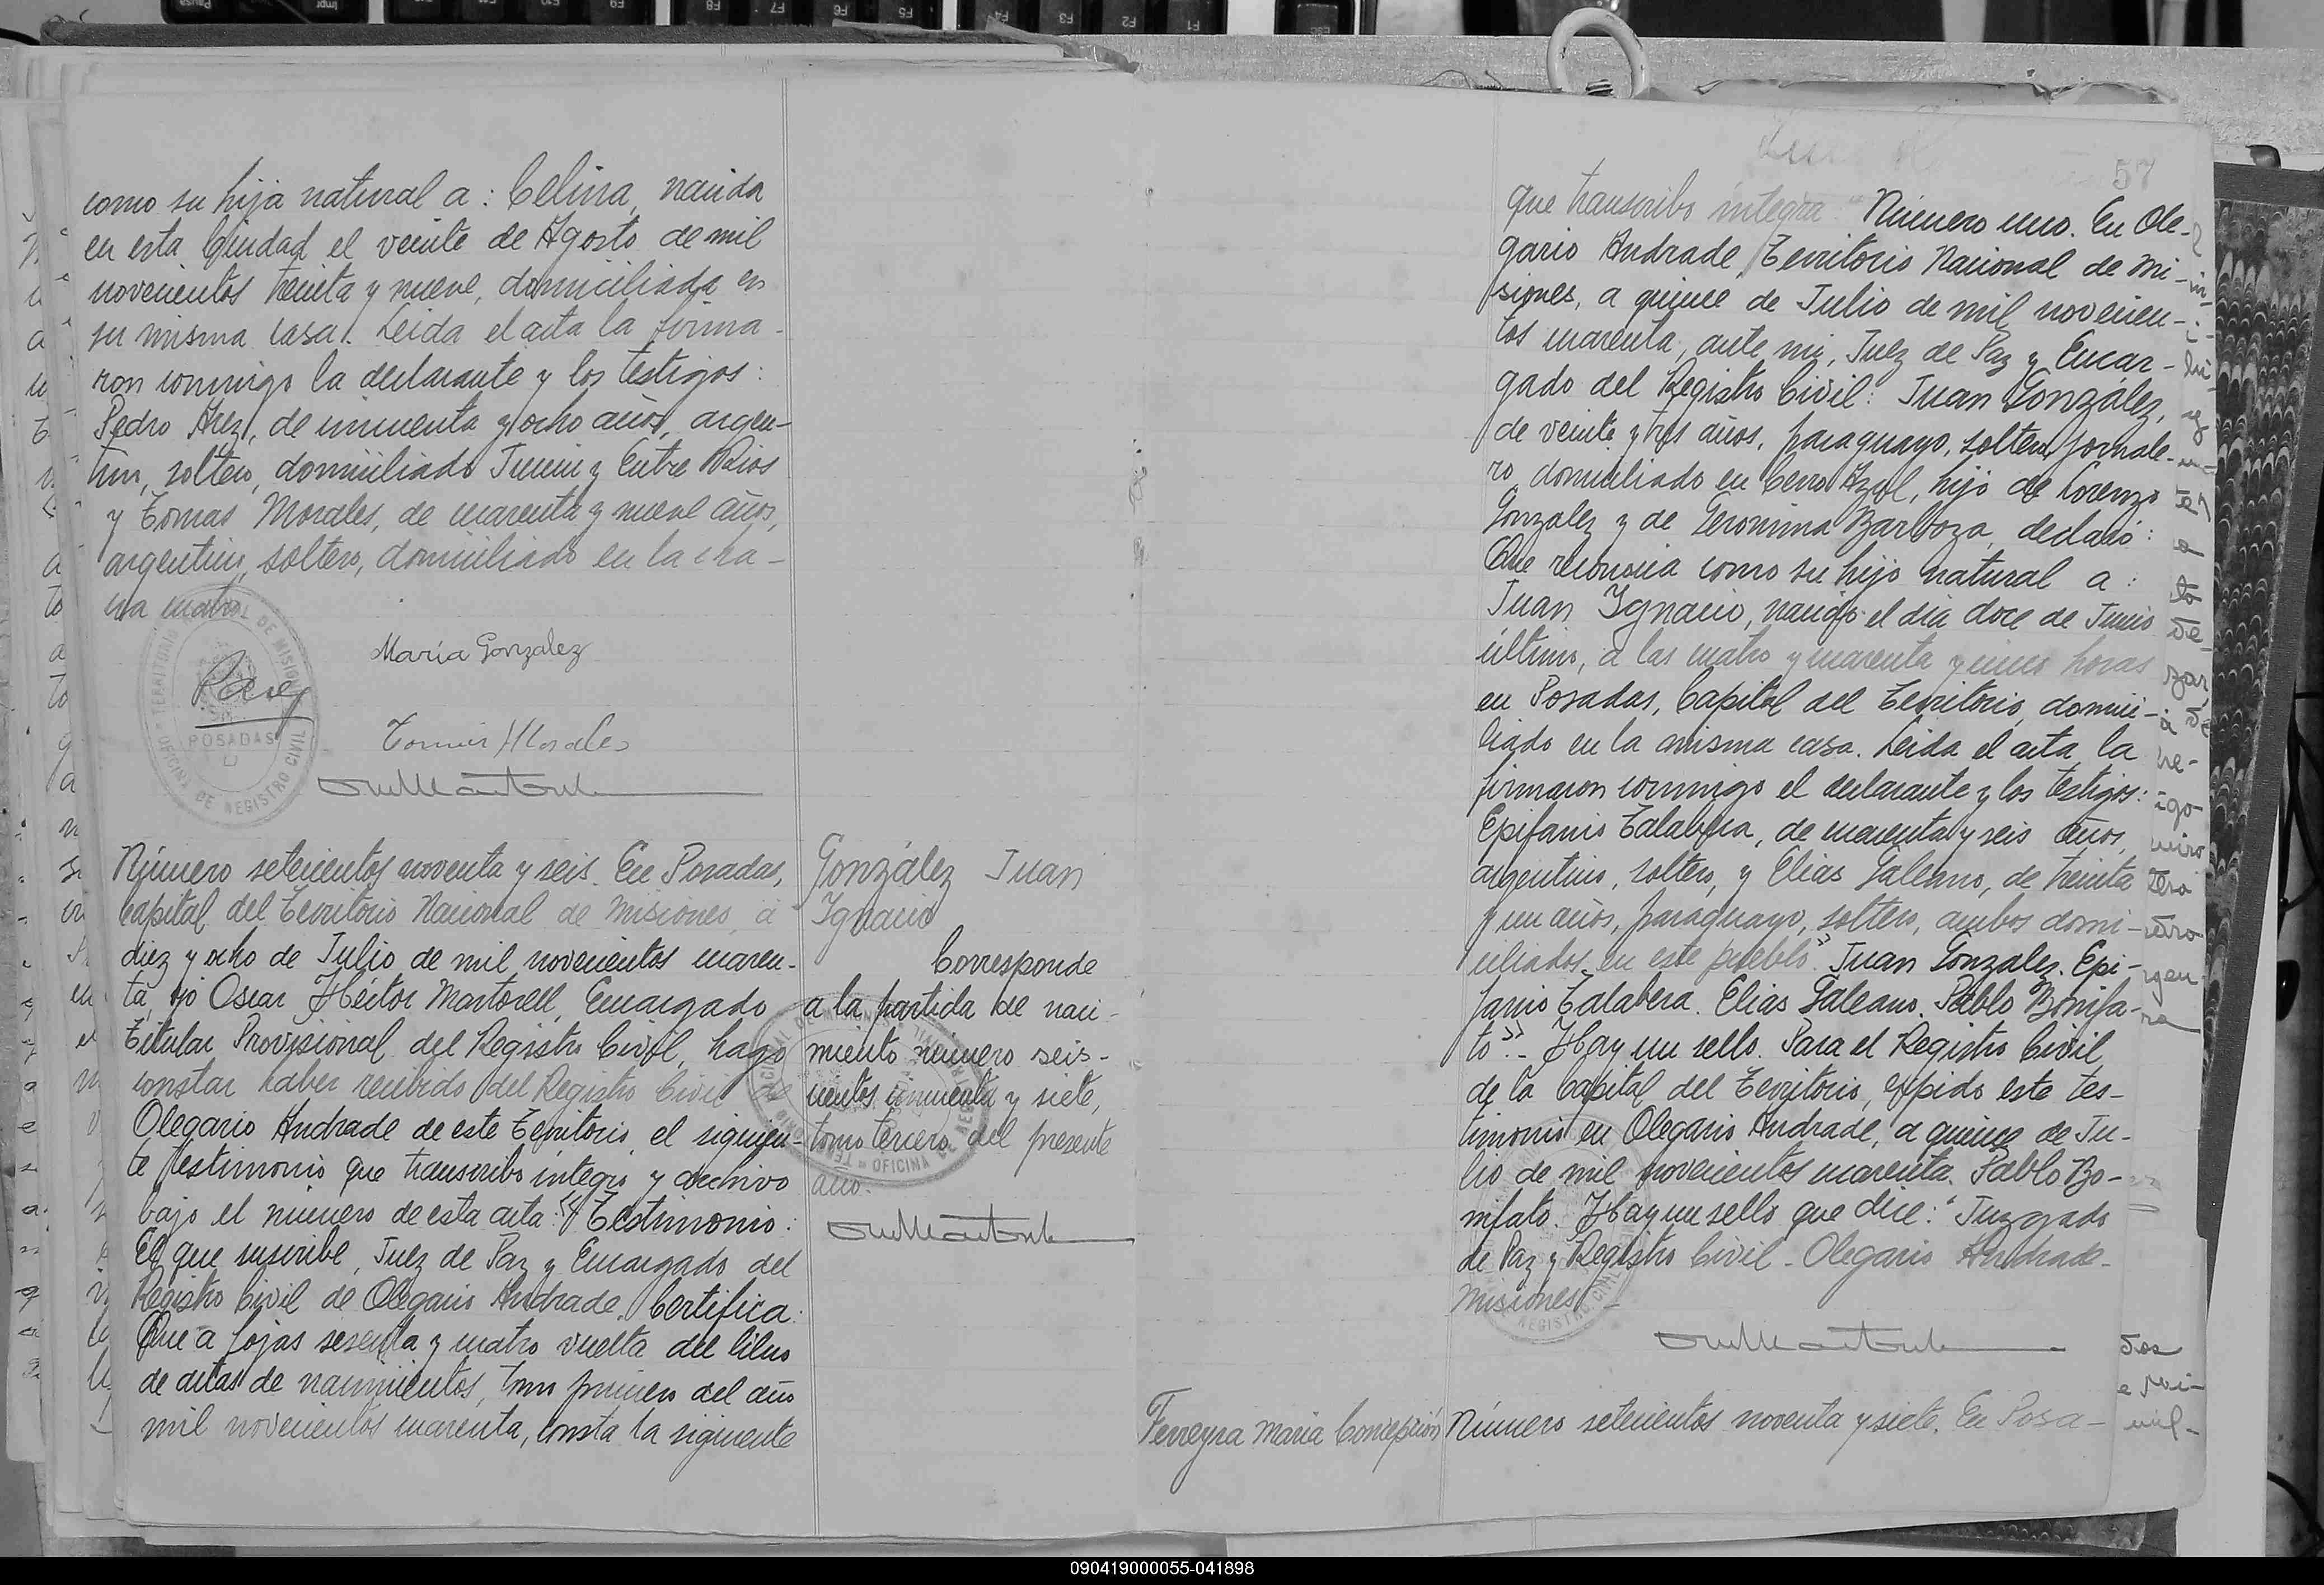 como su hija natural a: Celina, nacida
en esta Ciudad el veinte de Agosto de mil
novecientos treinta y nueve, domiciliada en
su misma casa. Leida el acta la firma-
ron conmigo la declarante y los testigos:
Pedro Arez, de cincuenta y ocho años, argen-
tino, soltero, domiciliado Junin y Entre Rios
y Tomas Morales, de cuarenta y nueve años,
argentino, soltero, domiciliado en la cha-
cra cuatro.
María Gonzalez
POSADAS
OFICINA DE REGISTRO CIVIL
Tomas Morales
Número setecientos noventa y seis. En Posadas,
Capital del Territorio Nacional de Misiones, a
diez y ocho de Julio de mil novecientos cuaren-
ta, yo Oscar Héctor Martorell, Encargado
Titular Provisional del Registro Civil, hago
constar haber recibido del Registro Civil de
Olegario Andrade de este Territorio, el siguien-
te testimonio que transcribo íntegro y archivo
bajo el número de esta acta: "Testimonio:
El que suscribe, Juez de Paz y Encargado del
Registro Civil de Olegario Andrade. Certifica:
Que a fojas sesenta y cuatro vuelta del libro
de actas de nacimientos, tomo primero del año
mil novecientos cuarenta, consta la siguiente
González Juan
Ignacio
Corresponde
a la partida de naci-
miento número seis-
cientos cincuenta y siete,
tomo tercero del presente
año.
57
que transcribo íntegra "Número uno. En Ole-
gario Andrade, Territorio Nacional de Mi-
siones, a quince de Julio de mil novecien-
tos cuarenta, ante mi, Juez de Paz y Encar-
gado del Registro Civil: Juan González,
de veinte y tres años, paraguayo, soltero, jornale-
ro, domiciliado en Cerro Azul, hijo de Lorenzo
González y de Geronima Barboza, declaró:
Que reconocia como su hijo natural a:
Juan Ignacio, nacido el dia doce de Junio
último, a las cuatro y cuarenta y cinco horas
en Posadas, Capital del Territorio, domici-
liado en la misma casa. Leida el acta la
firmaron conmigo el declarante y los testigos:
Epifanio Talabera, de cuarenta y seis años,
argentino, soltero, y Elias Galeano, de treinta
y un años, paraguayo, soltero, ambos domi-
ciliados en este pueblo". Juan Gonzalez. Epi-
fanio Talabera. Elias Galeano. Pablo Bonifa-
to". - Hay un sello. Para el Registro Civil
de la Capital del Territorio, expido este tes-
timonio en Olegario Andrade, a quince de Ju-
lio de mil novecientos cuarenta. Pablo Bo-
nifato. Hay un sello que dice: "Juzgado
de Paz y Registro Civil - Olegario Andrade -
Misiones" -
Ferreyra Maria Concepción
Número setecientos noventa y siete. En Posa-
090419000055-041898